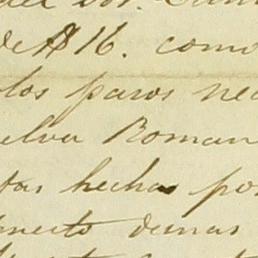 de $16. como
los paros nec
elva Roman
tas hechas po
mento demas